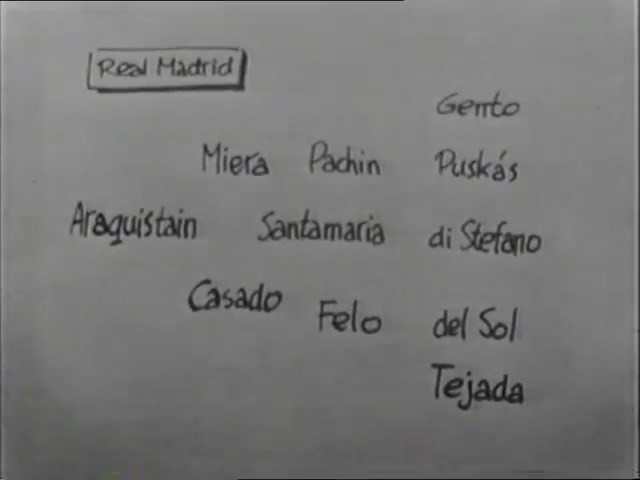 Real Madrid
Gento
Miera Pachin Puskás
Araquistain Santamaria di Stefano
Casado Felo del Sol
Tejada